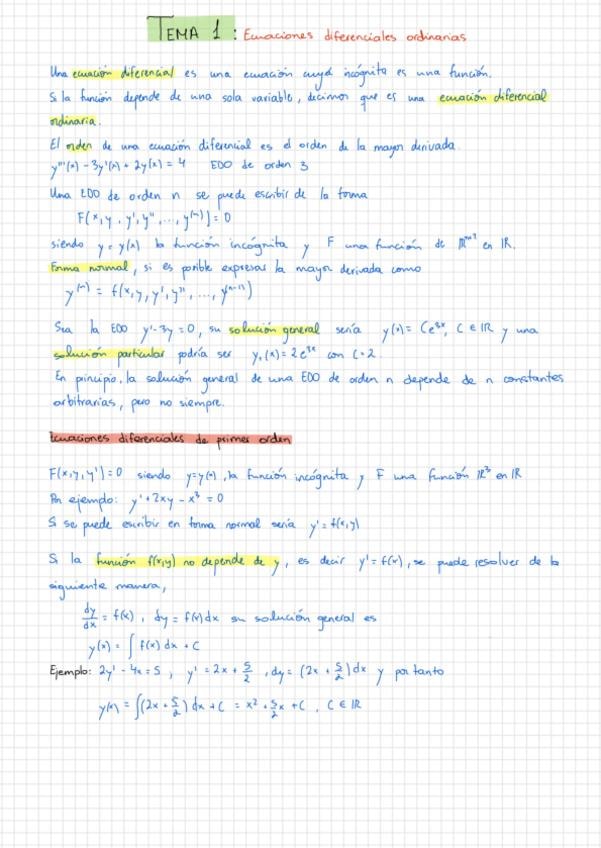 TEMA 1 : Ecuaciones diferenciales ordinarias
Una ecuación diferencial es una ecuación cuya incógnita es una función.
Si la función depende de una sola variable, decimos que es una ecuación diferencial
ordinaria.
El orden de una ecuación diferencial es el orden de la mayor derivada.
y'''(x) - 3y'(x) + 2y(x) = 4 EDO de orden 3
Una EDO de orden n se puede escribir de la forma
F(x, y, y', y'', ..., y⁽ⁿ⁾) = 0
siendo y = y(x) la función incógnita y F una función de ℝⁿ⁺² en ℝ.
Forma normal, si es posible expresar la mayor derivada como
y⁽ⁿ⁾ = f(x, y, y', y'', ..., y⁽ⁿ⁻¹⁾)
Sea la EDO y' - 3y = 0, su solución general sería y(x) = Ce³ˣ, C ∈ ℝ y una
solución particular podría ser y₁(x) = 2e³ˣ con C = 2.
En principio, la solución general de una EDO de orden n depende de n constantes
arbitrarias, pero no siempre.
Ecuaciones diferenciales de primer orden
F(x, y, y') = 0 siendo y = y(x), la función incógnita y F una función ℝ³ en ℝ
Por ejemplo: y' + 2xy - x³ = 0
Si se puede escribir en forma normal sería y' = f(x,y)
Si la función f(x,y) no depende de y, es decir y' = f(x), se puede resolver de la
siguiente manera,
dy/dx = f(x), dy = f(x)dx su solución general es
y(x) = ∫ f(x) dx + C
Ejemplo: 2y' - 4x = 5, y' = 2x + 5/2, dy = (2x + 5/2)dx y por tanto
y(x) = ∫(2x + 5/2) dx + C = x² + 5/2x + C, C ∈ ℝ